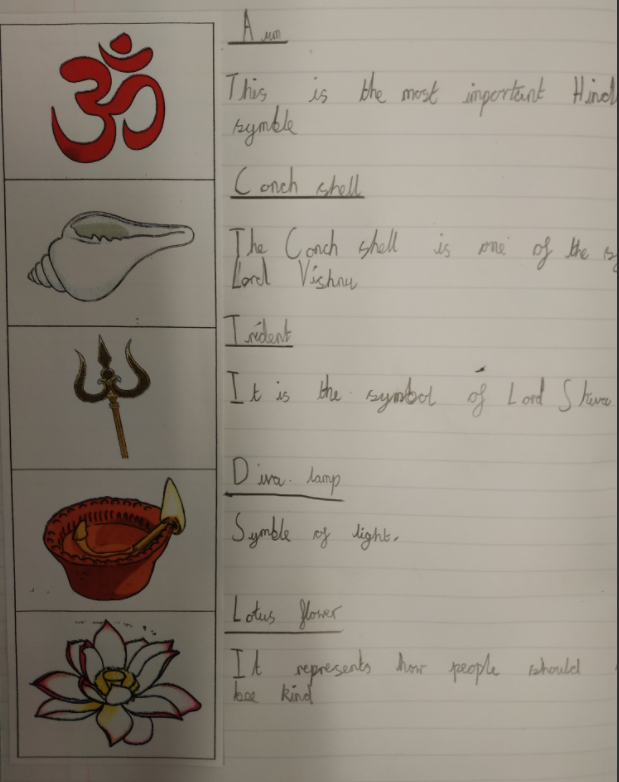 Aum
This is the most important Hind
symble
Conch shell
The Conch shell is one of the
Lord Vishnu
Trident
It is the symbol of Lord Shiva
Diva. lamp
Symble of light.
Lotus flower
It represents how people should
bee kind